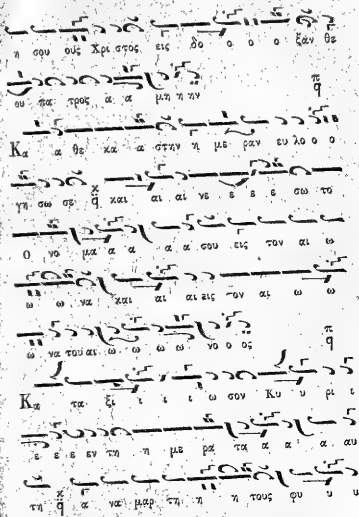 η σου ους Χρι στος εις δο ο ο ο ξαν θε
ου πα τρος α α μη η ην
Κα α θε κα α στην η με ραν ευ λο ο ο
γη σω σε και αι αι νε ε ε ε σω το
ο νο μα α α α α σου εις τον αι ω
ω ω να και αι αι εις τον αι ω ω
ω να του αι ω ω ω ω νο ο ος
Κα τα ξι ι ι ι ω σον Κυ υ ρι ι
ε ε ε εν τη η με ρα τα α α α αυ
τη α να μαρ τη η η τους φυ υ υ